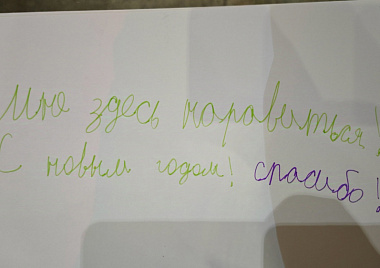 Мне здесь наравиться!
С новым годом! спасибо!